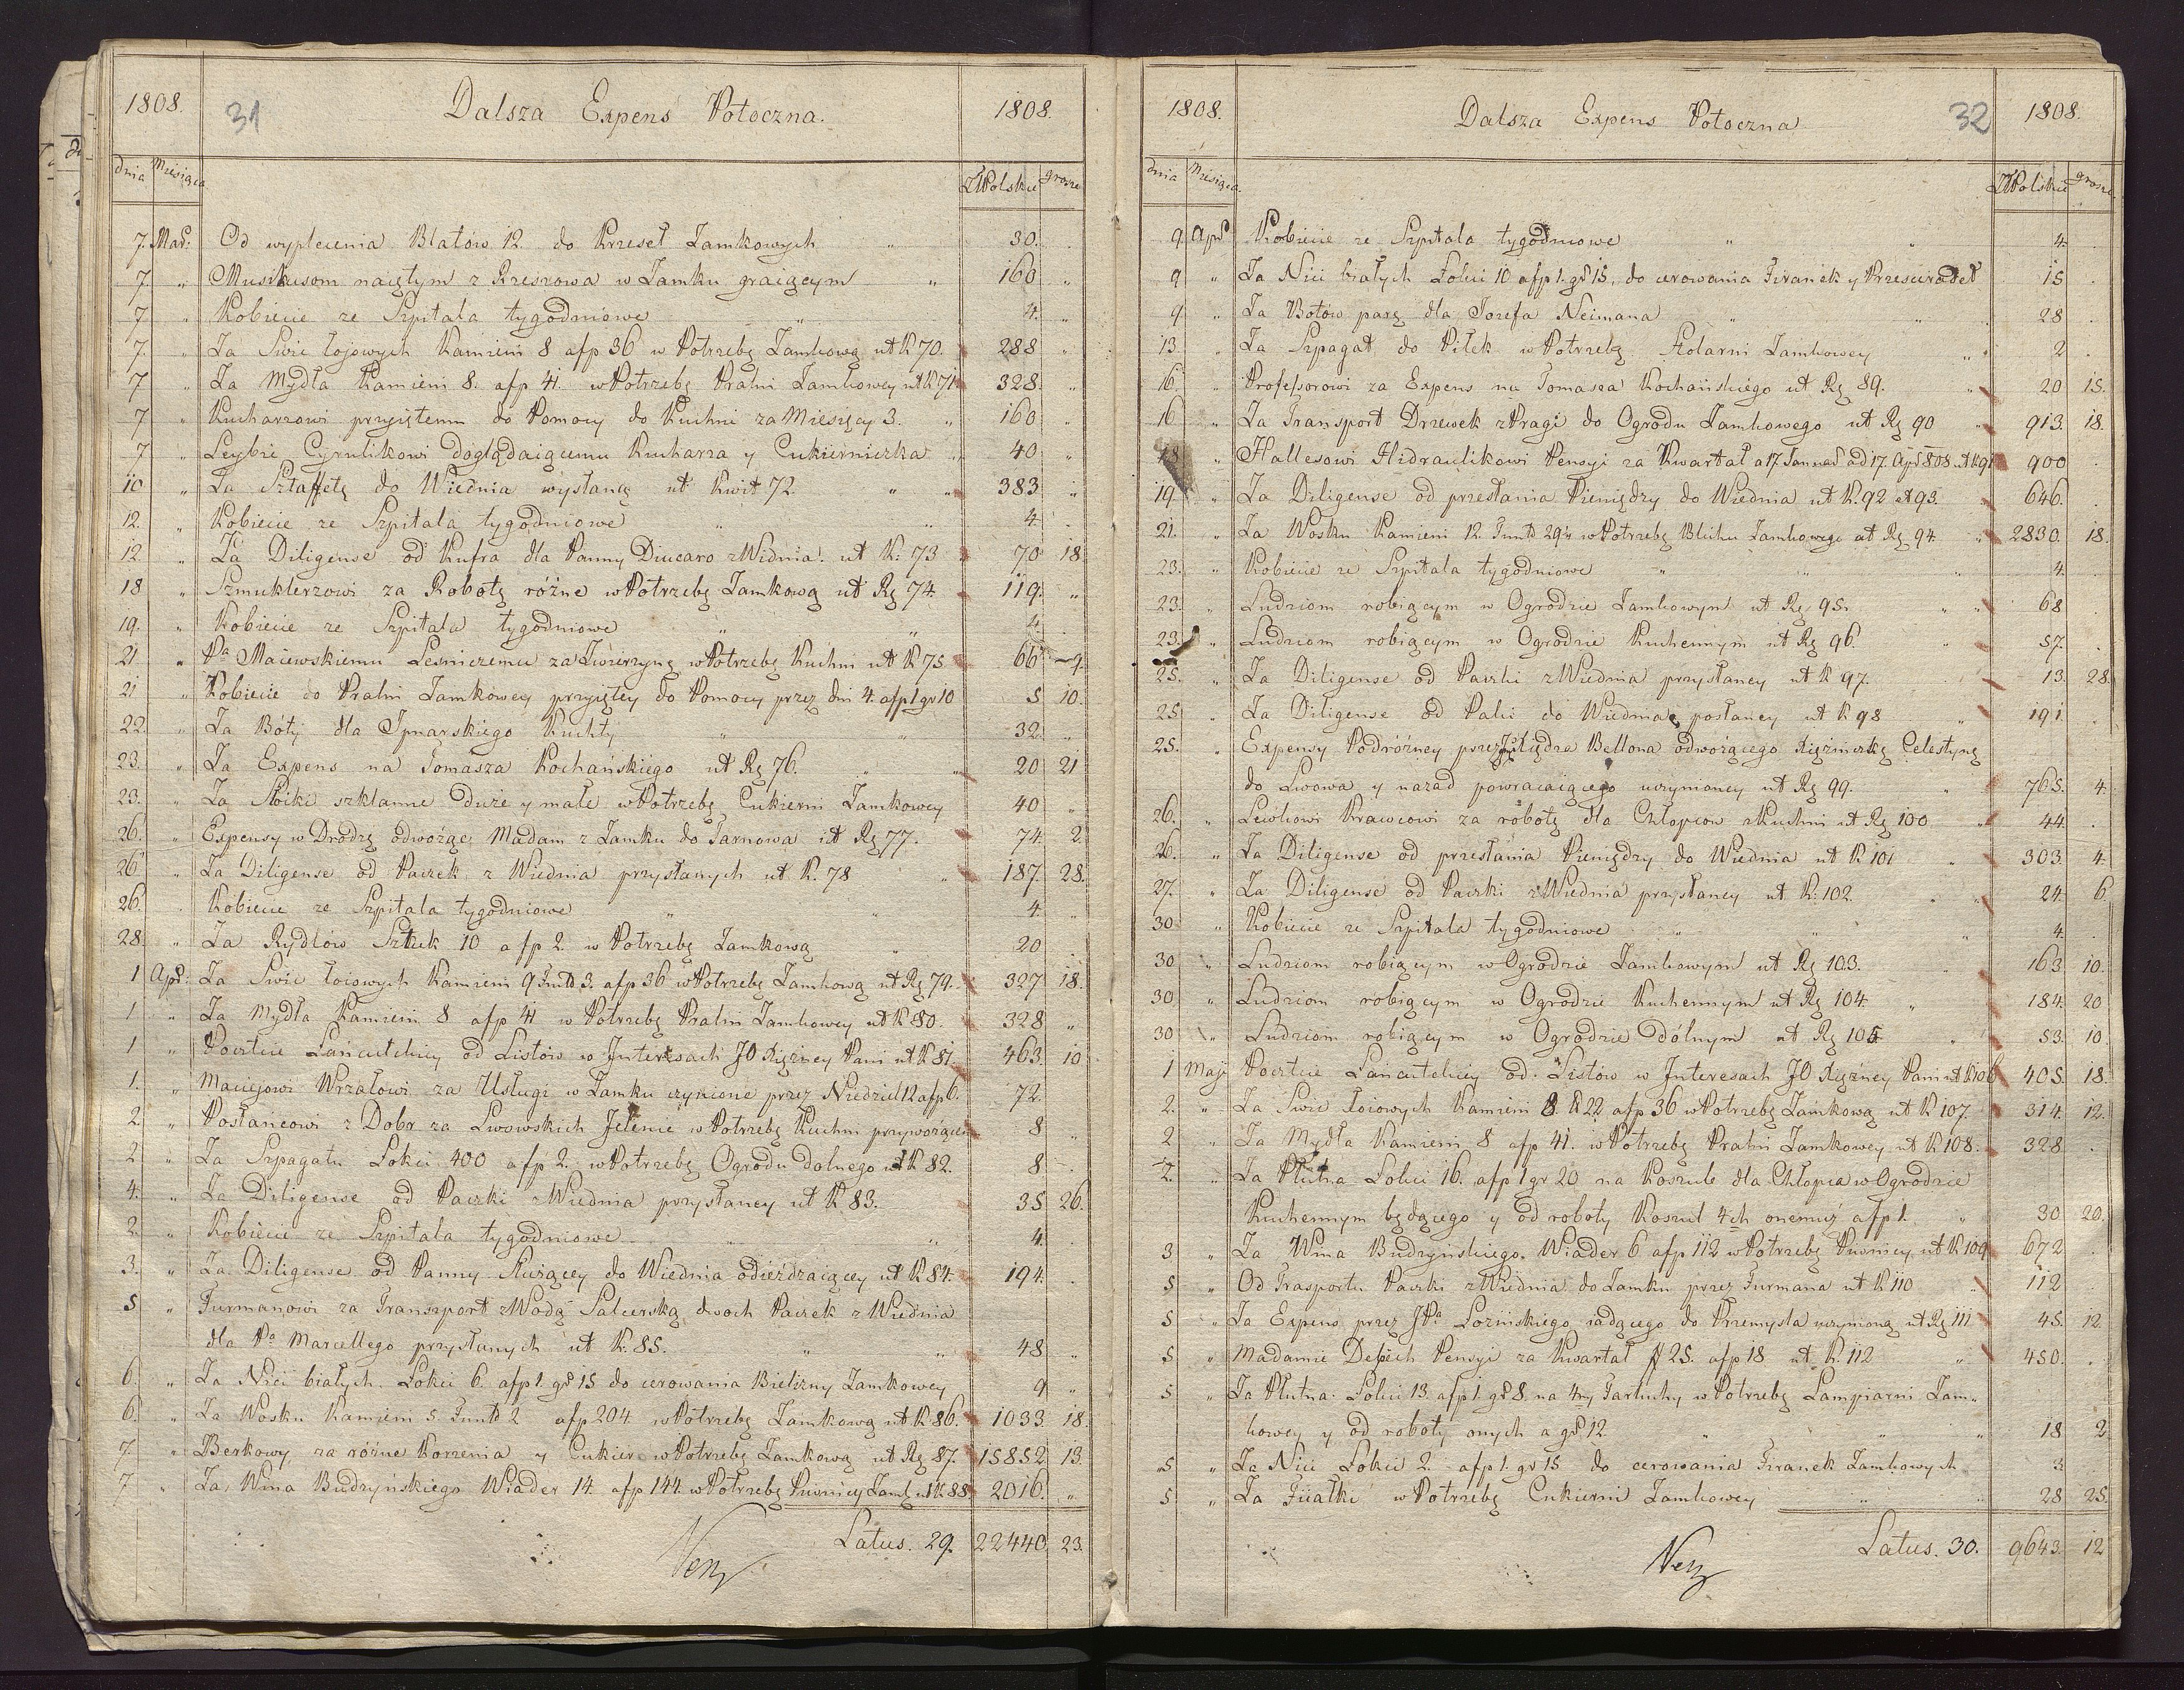 1808. 31 Dalsza Expens Potoczna. 1808.
dnia Miesiąca ZłPolskie grosze
7. Mar: Od wyplecenia Blatów 12 do Krzeseł Zamkowych " 30. "
7. " Musikusom naiętym z Rzeszowa w Zamku graiącym " 160 "
7 " Kobiecie ze Szpitala tygodniowe " 4. "
7. " Za Swiec łojowych Kamieni 8 afp 36 w Potrzebę Zamkową ut K 70. 288 "
7 " Za Mydła Kamieni 8. afp 41. w Potrzebę Pralni Zamkowey ut K 71 328. "
7 " Kucharzowi przyiętemu do Pomocy do Kuchni za Miesięcy 3. " 160 "
7 " Leybie Cyrulikowi doglądaiącemu Kucharza y Cukierniczka " 40 "
10 " Za Sztaffetę do Wiednia wysłaną ut Kwit 72 " " 383 "
12. " Kobiecie ze Szpitala tygodniowe " " 4. .
12 " Za Diligense od Kufra dla Panny Diucaro z Widnia. ut K: 73 70 18
18 " Szmuklerzowi za Robotę różne w Potrzebę Zamkową ut Rg 74. 119. "
19. " Kobiecie ze Szpitala tygodniowe " " 4. .
21 " Pa Maiewskiemu Lesniczemu za Zwierzynę w Potrzebę Kuchni ut K 75 66 9.
21 " Kobiecie do Pralni Zamkowey przyiętey do Pomocy przez dni 4. afp 1 gr 10 5 10.
22. " Za Bóty dla Ignarskiego Kuchty " " 32. "
23. " Za Expens na Tomasza Kochańskiego ut Rg 76. " 20 21
23. " Za Słoiki szklanne duże y małe w Potrzebę Cukierni Zamkowey 40 "
26. " Expensy w Drodzę odwożąc Madam z Zamku do Tarnowa ut Rg 77. 74. 2.
26 " Za Diligense od Paczek z Wiednia przysłanych ut K. 78 " 187 28.
26. . Kobiecie ze Szpitala tygodniowe " " 4. "
28. " Za Rydlów Sztuk 10 a fp 2. w Potrzebę Zamkową " 20 .
1 Apr: Za Swiec łoiowych Kamieni 9 Funtt 3. afp 36 w Potrzebę Zamkową ut Rg 79. 327 18.
1 " Za Mydła Kamieni 8 afp 41 w Potrzebę Pralni Zamkowey ut K 80. 328 "
1 " Poczcie Łańcutckiey od Listów w Interesach JO Xiężney Pani ut K 81. 463. 10
1. " Maciejowi Wrzałowi za Usługi w Zamku czynione przez Niedziel 12 afp 6. 72. .
2. " Posłańcowi z Dobr za Lwowskich Jelenie w Potrzebę Kuchni przywożącem 8 "
2 " Za Szpagatu Łokci 400 afp 2. w Potrzebę Ogrodu dolnego ut K 82. 8 .
4. " Za Diligense od Paczki z Wiednia przysłaney ut K 83. 35 26.
2. " Kobiecie ze Szpitala tygodniowe " 4. .
3. " Za Diligense od Panny Służącey do Wiednia odieżdzaiącey ut K 84. 194. .
5 " Furmanowi za Transzport z Wodą Salcerską dwoch Paczek z Wiednia
dla Pa Marcellego przysłanych ut K. 85. " " 48 "
6. " Za Nici białych Łokci 6. afp 1. gr 15 do cerowania Bielizny Zamkowey 9 "
6. " Za Wosku Kamieni 5 Funtt 2 afp 204 w Potrzebę Zamkową ut K 86. 1033 18.
7. " Berkowy za różne Korzenia y Cukier w Potrzebę Zamkową ut Rg 87. 15852 13.
7 " Za Wina Budzyńskiego Wiader 14 afp 144. w Potrzebę Piwnicy Zamk. ut K 88 2016. "
Latus. 29. 22440. 23.
1808. Dalsza Expens Potoczna 32 1808.
dnia Miesiąca ZłPolskie grosze
9. Apr Kobiecie ze Szpitala tygodniowe " " 4. .
9 " Za Nici białych Łokci 10 afp 1. gr 15, do cerowania Firanek y Przescieradeł 15 .
9 " Za Botów parę dla Jozefa Neimana " " 28 .
13. " Za Szpagat do Piłek w Potrzebę Stolarni Zamkowey " " 2 .
16. " Professorowi za Expens na Tomasza Kochańskiego ut Rg 89. " 20 15.
16 " Za Transport Drzewek z Pragi do Ogrodu Zamkowego ut Rg 90 " 913. 18.
18 " Hallesowi Hidraulikowi Pensyi za Kwartał a 17 Januar ad 17. Apr 808. ut K 91 900 .
19 " Za Diligense od przesłania Pieniędzy do Wiednia ut K. 92 et 93. 646. .
21. " Za Wosku Kamieni 12. Funtt 29¼ w Potrzebę Blichu Zamkowego ut Rg 94. " 2830. 18.
23. " Kobiecie ze Szpitala tygodniowe " " " 4. .
23. " Ludziom robiącym w Ogrodzie Zamkowym ut Rg 95. " " 68 .
23. " Ludziom robiącym w Ogrodzie Kuchennym ut Rg 96. " 57. .
25. " Za Diligense od Paczki z Wiednia przysłaney ut K 97. 13. 28.
25 " Za Diligense od Paki do Wiednia posłaney ut K 98 " 191 .
25. " Expensy Podróżney przez Xiędza Bellona odwożącego Xiężniczkę Celestynę
do Lwowa y nazad powracaiącego uczynioney ut Rg 99. " 765. 4.
26. " Lewkowi Krawcowi za robotę dla Chłopcow z Kuchni ut Rg 100 " 44. .
26. " Za Diligense od przesłania Pieniędzy do Wiednia ut K 101 " 303. 4.
27. " Za Diligense od Paczki z Wiednia przysłaney ut K. 102. " " 24. 6
30 " Kobiecie ze Szpitala tygodniowe " " " 4. .
30. " Ludziom robiącym w Ogrodzie Zamkowym ut Rg 103. " 163 10
30 " Ludziom robiącym w Ogrodzie Kuchennym ut Rg 104. " 184. 20
30 " Ludziom robiącym w Ogrodzie dólnym ut Rg 105 " 53. 10
1 Maji Poczcie Łańcutckiey od Listów w Interesach JO Xiężney Pani ut K 106 405. 18.
2. " Za Swiec Łoiowych Kamieni 8. ℔ 22 afp 36 w Potrzebę Zamkową ut K 107 314. 12.
2 " Za Mydła Kamieni 8 afp 41. w Potrzebę Pralni Zamkowey ut K 108. 328 .
2. " Za Płutna Łokci 16. afp 1 gr 20 na Koszule dla Chłopca w Ogrodzie
Kuchennym będącego y od roboty Koszul 4ch onemuż afp 1. " 30 20.
3 " Za Wina Budzyńskiego. Wiader 6 afp 112 w Potrzebę Piwnicy ut K 109 672 .
5 " Od Trasportu Paczki z Wiednia do Zamku przez Furmana ut K 110 " 112 .
5 " Za Expens przez JPa Łozińskiego iadącego do Przemysla uczynioną ut Rg 111 45. 12
5. " Madamie Depich Pensyi za Kwartał # 25. afp 18 ut K. 112 " 450. .
5 " Za Płutna Łokci 13. afp 1. gr 8. na 4ry Fartuchy w Potrzebę Lampiarni Zam-
kowey y od roboty onych a gr 12. " " " 18 2
5 " Za Nici Łokci 2. afp 1. gr 15 do cerowania Firanek Zamkowych 3 .
5 " Za Fiiałki w Potrzebę Cukierni Zamkowey " " 28 25.
Latus. 30. 9643. 12